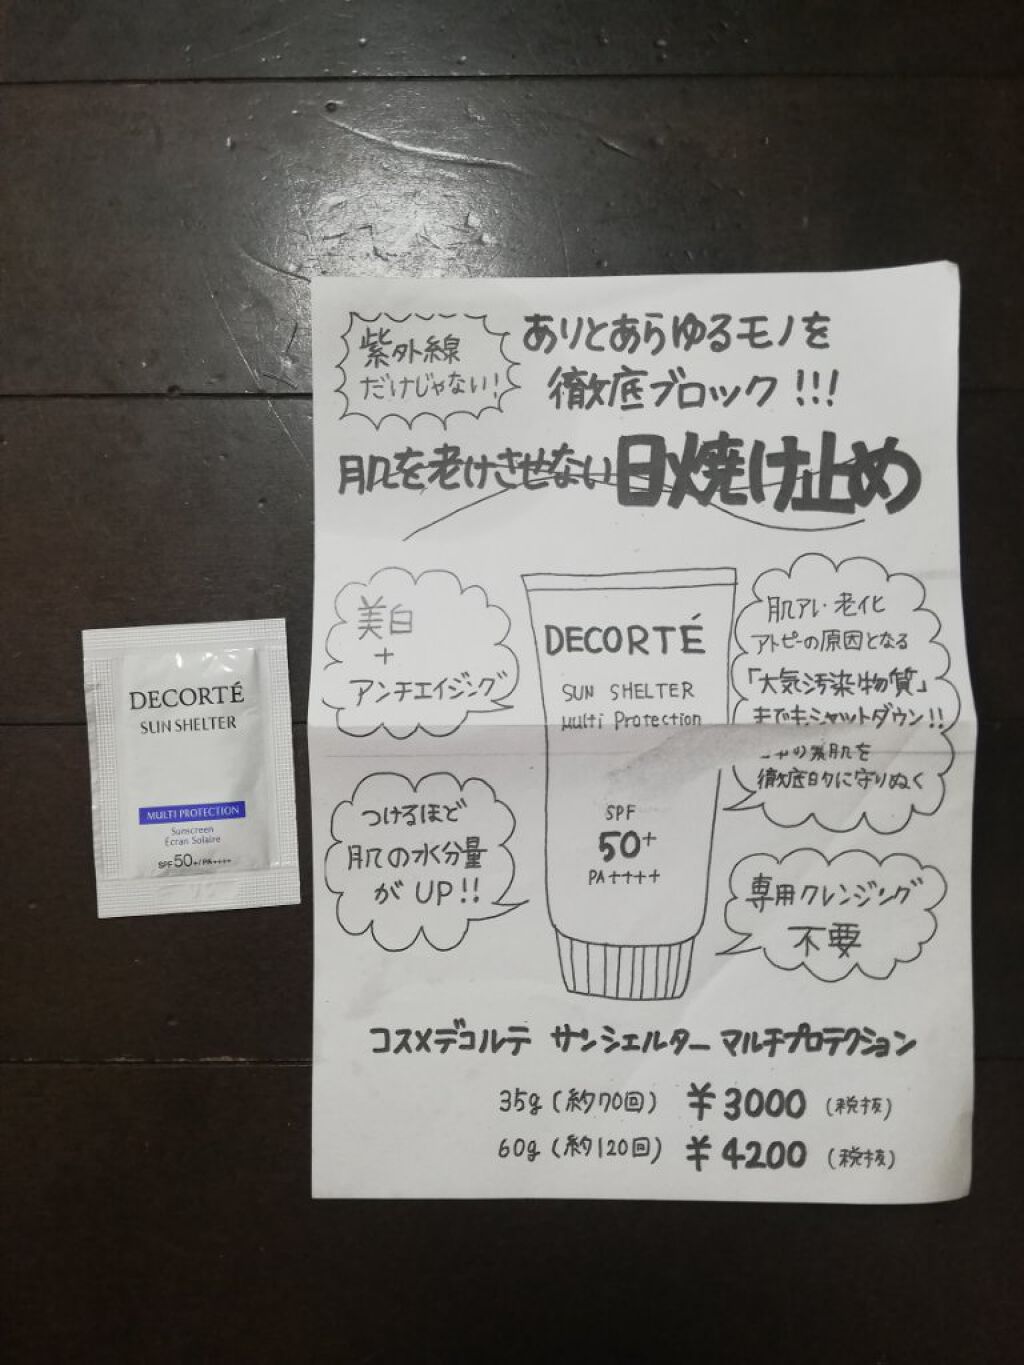 紫外線
だけじゃない!
ありとあらゆるモノを
徹底ブロック!!!
肌を老けさせない日焼け止め
美白
+
アンチエイジング
つけるほど
肌の水分量
がUP!!
DECORTÉ
SUN SHELTER
Multi Protection
SPF
50+
PA++++
肌アレ・老化
アトピーの原因となる
「大気汚染物質」
までもシャットダウン!!
素肌を
徹底的に守りぬく
専用クレンジング
不要
コスメデコルテ サンシェルター マルチプロテクション
35g(約70回) ¥3000(税抜)
60g(約120回) ¥4200(税抜)
DECORTÉ
SUN SHELTER
MULTI PROTECTION
Sunscreen
Écran Solaire
SPF50+/PA++++